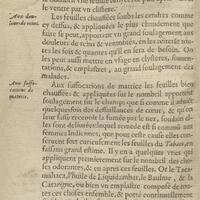 le venant par vn clistere.
Aux dou-
leurs de reins.
Les feuilles chauffées soubs les cendres comme
dessus, & appliquées le plus chaudement que
faire se peut, apportent vn grand soulagement aux
douleurs de reins & ventosités, en les reiterant toutes
les fois & quantes qu'il en sera de besoin. On
les peut aussi mettre en vsage en clysteres, fomen-
tations, & emplastres, au grand soulagement des
malades.
Aux suffo-
cations de
matrice.
Aux suffocations de matrice les feuilles bien
chauffées & appliquées sur le nombril apportent
soulagement sur le champ: que si comme il aduient
quelques vnes des deffaillances de cœur, & qu'on
leur fasse receuoir la fumée par le nez, soudain elles
reuiennent à soy, ce qui est si commun aux
femmes Indiennes, que pour cette cause elles con-
seruent fort curieusement les feuilles du Tabaco, en
faisans grand estime. Il y en a quelques vnes qui
appliquent premierement sur le nombril des choses
odorantes, & en apres Or le Taca-
mahaca, l'huile de Liquidambar, le Baulme, & la
Caragne, ou bien vn emplastre composé de tou-
tes ces choses ensemble, & porté continuellement